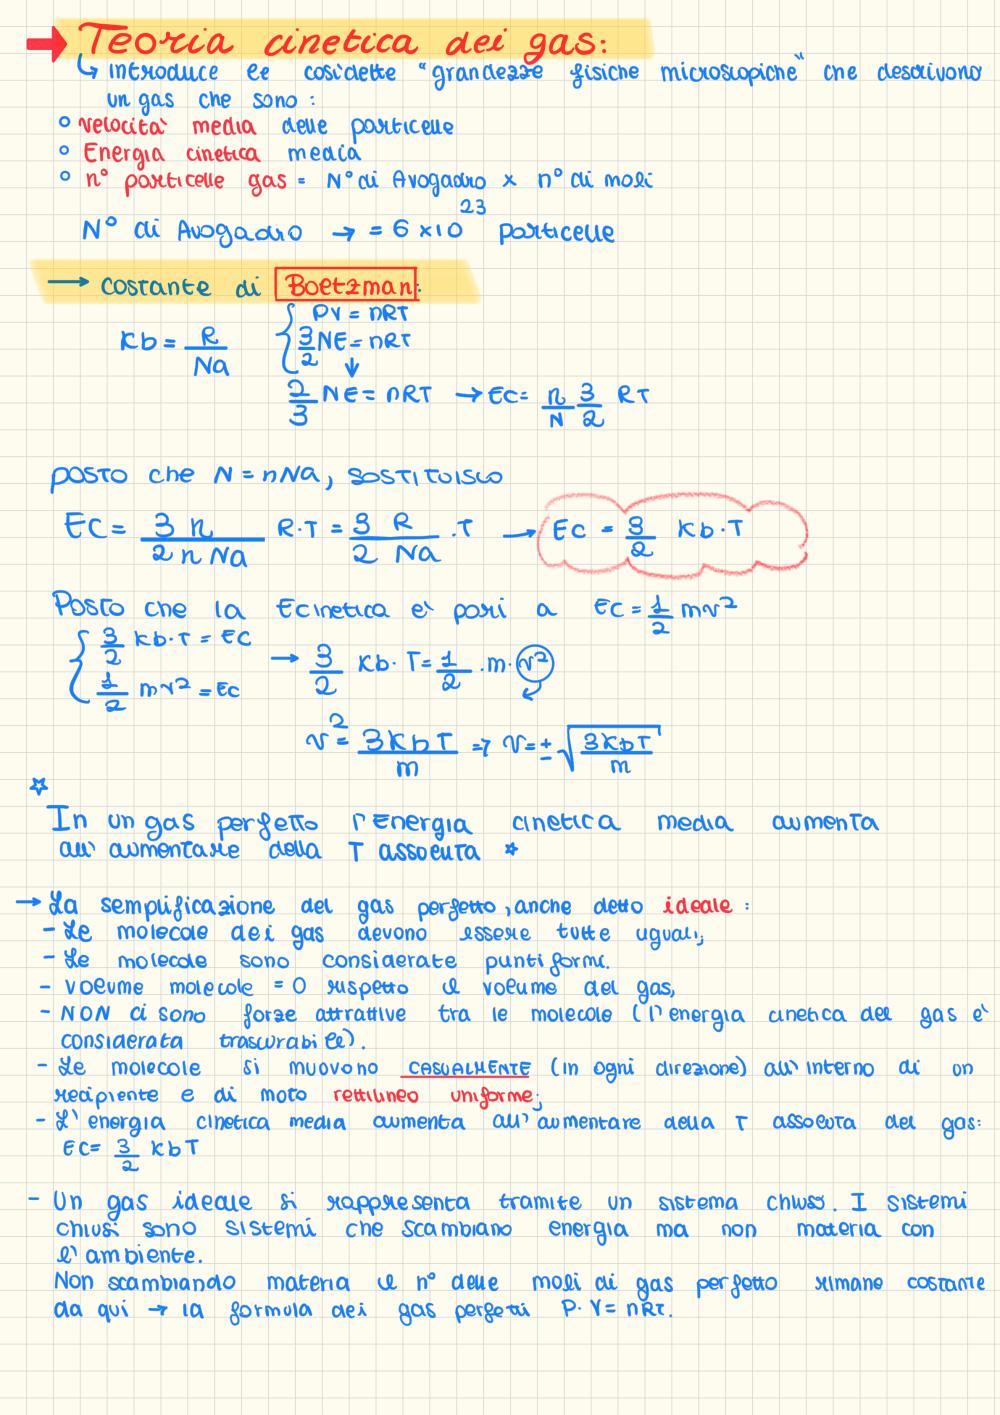 → Teoria cinetica dei gas:
↳ introduce le cosidette "grandezze fisiche microscopiche" che descrivono
un gas che sono:
° velocità media delle particelle
° Energia cinetica media
° n° particelle gas = N° di Avogadro x n° di moli
N° di Avogadro → = 6 x 10²³ particelle
→ costante di Boltzman:
Kb = R/Na { PV = nRT
3/2 NE = nRT
↓
2/3 NE = nRT → EC = n/N 3/2 RT
posto che N = nNa, SOSTITUISCO
EC = 3n/2nNa R·T = 3R/2Na .T → EC = 3/2 Kb·T
Posto che la Ecinetica è pari a EC = 1/2 mv²
{ 3/2 Kb·T = EC
1/2 mv² = Ec → 3/2 Kb·T = 1/2 .m.v²
v² = 3KbT/m => v = ± √3KbT/m
☆
In un gas perfetto l'Energia cinetica media aumenta
all'aumentare della T assoluta ☆
→ La semplificazione del gas perfetto, anche detto ideale:
- Le molecole dei gas devono essere tutte uguali;
- Le molecole sono considerate puntiformi.
- volume molecole = 0 rispetto il volume del gas,
- NON ci sono forze attrattive tra le molecole (l'energia cinetica del gas è
considerata trascurabile).
- Le molecole si muovono CASUALMENTE (in ogni direzione) all'interno di un
recipiente e di moto rettilineo uniforme;
- L'energia cinetica media aumenta all'aumentare della T assoluta del gas:
EC = 3/2 KbT
- Un gas ideale si rappresenta tramite un sistema chiuso. I sistemi
chiusi sono sistemi che scambiano energia ma non materia con
l'ambiente.
Non scambiando materia il n° delle moli di gas perfetto rimane costante
da qui → la formula dei gas perfetti P·V = nRT.